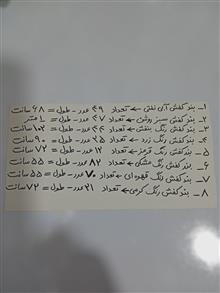 ۱_ بند کفش آبی نفتی ← تعداد ۴۹ عدد - طول = ۶۸ سانت
۲_ بند کفش سبز روشن ← تعداد ۴۷ عدد - طول = ۱ متر
۳_ بند کفش رنگ بنفش ← تعداد ۴۴ عدد - طول = ۱۰۲ سانت
۴_ بند کفش رنگ زرد ← تعداد ۲۵ عدد - طول = ۹۰ سانت
۵_ بند کفش رنگ قرمز ← تعداد ۱۲ عدد - طول = ۷۲ سانت
۶_ بند کفش رنگ مشکی ← تعداد ۸۲ عدد - طول = ۵۵ سانت
۷_ بند کفش رنگ قهوه ای ← تعداد ۷۰ عدد - طول = ۵۵ سانت
۸_ بند کفش رنگ کرمی ← تعداد ۲۱ عدد - طول = ۷۲ سانت